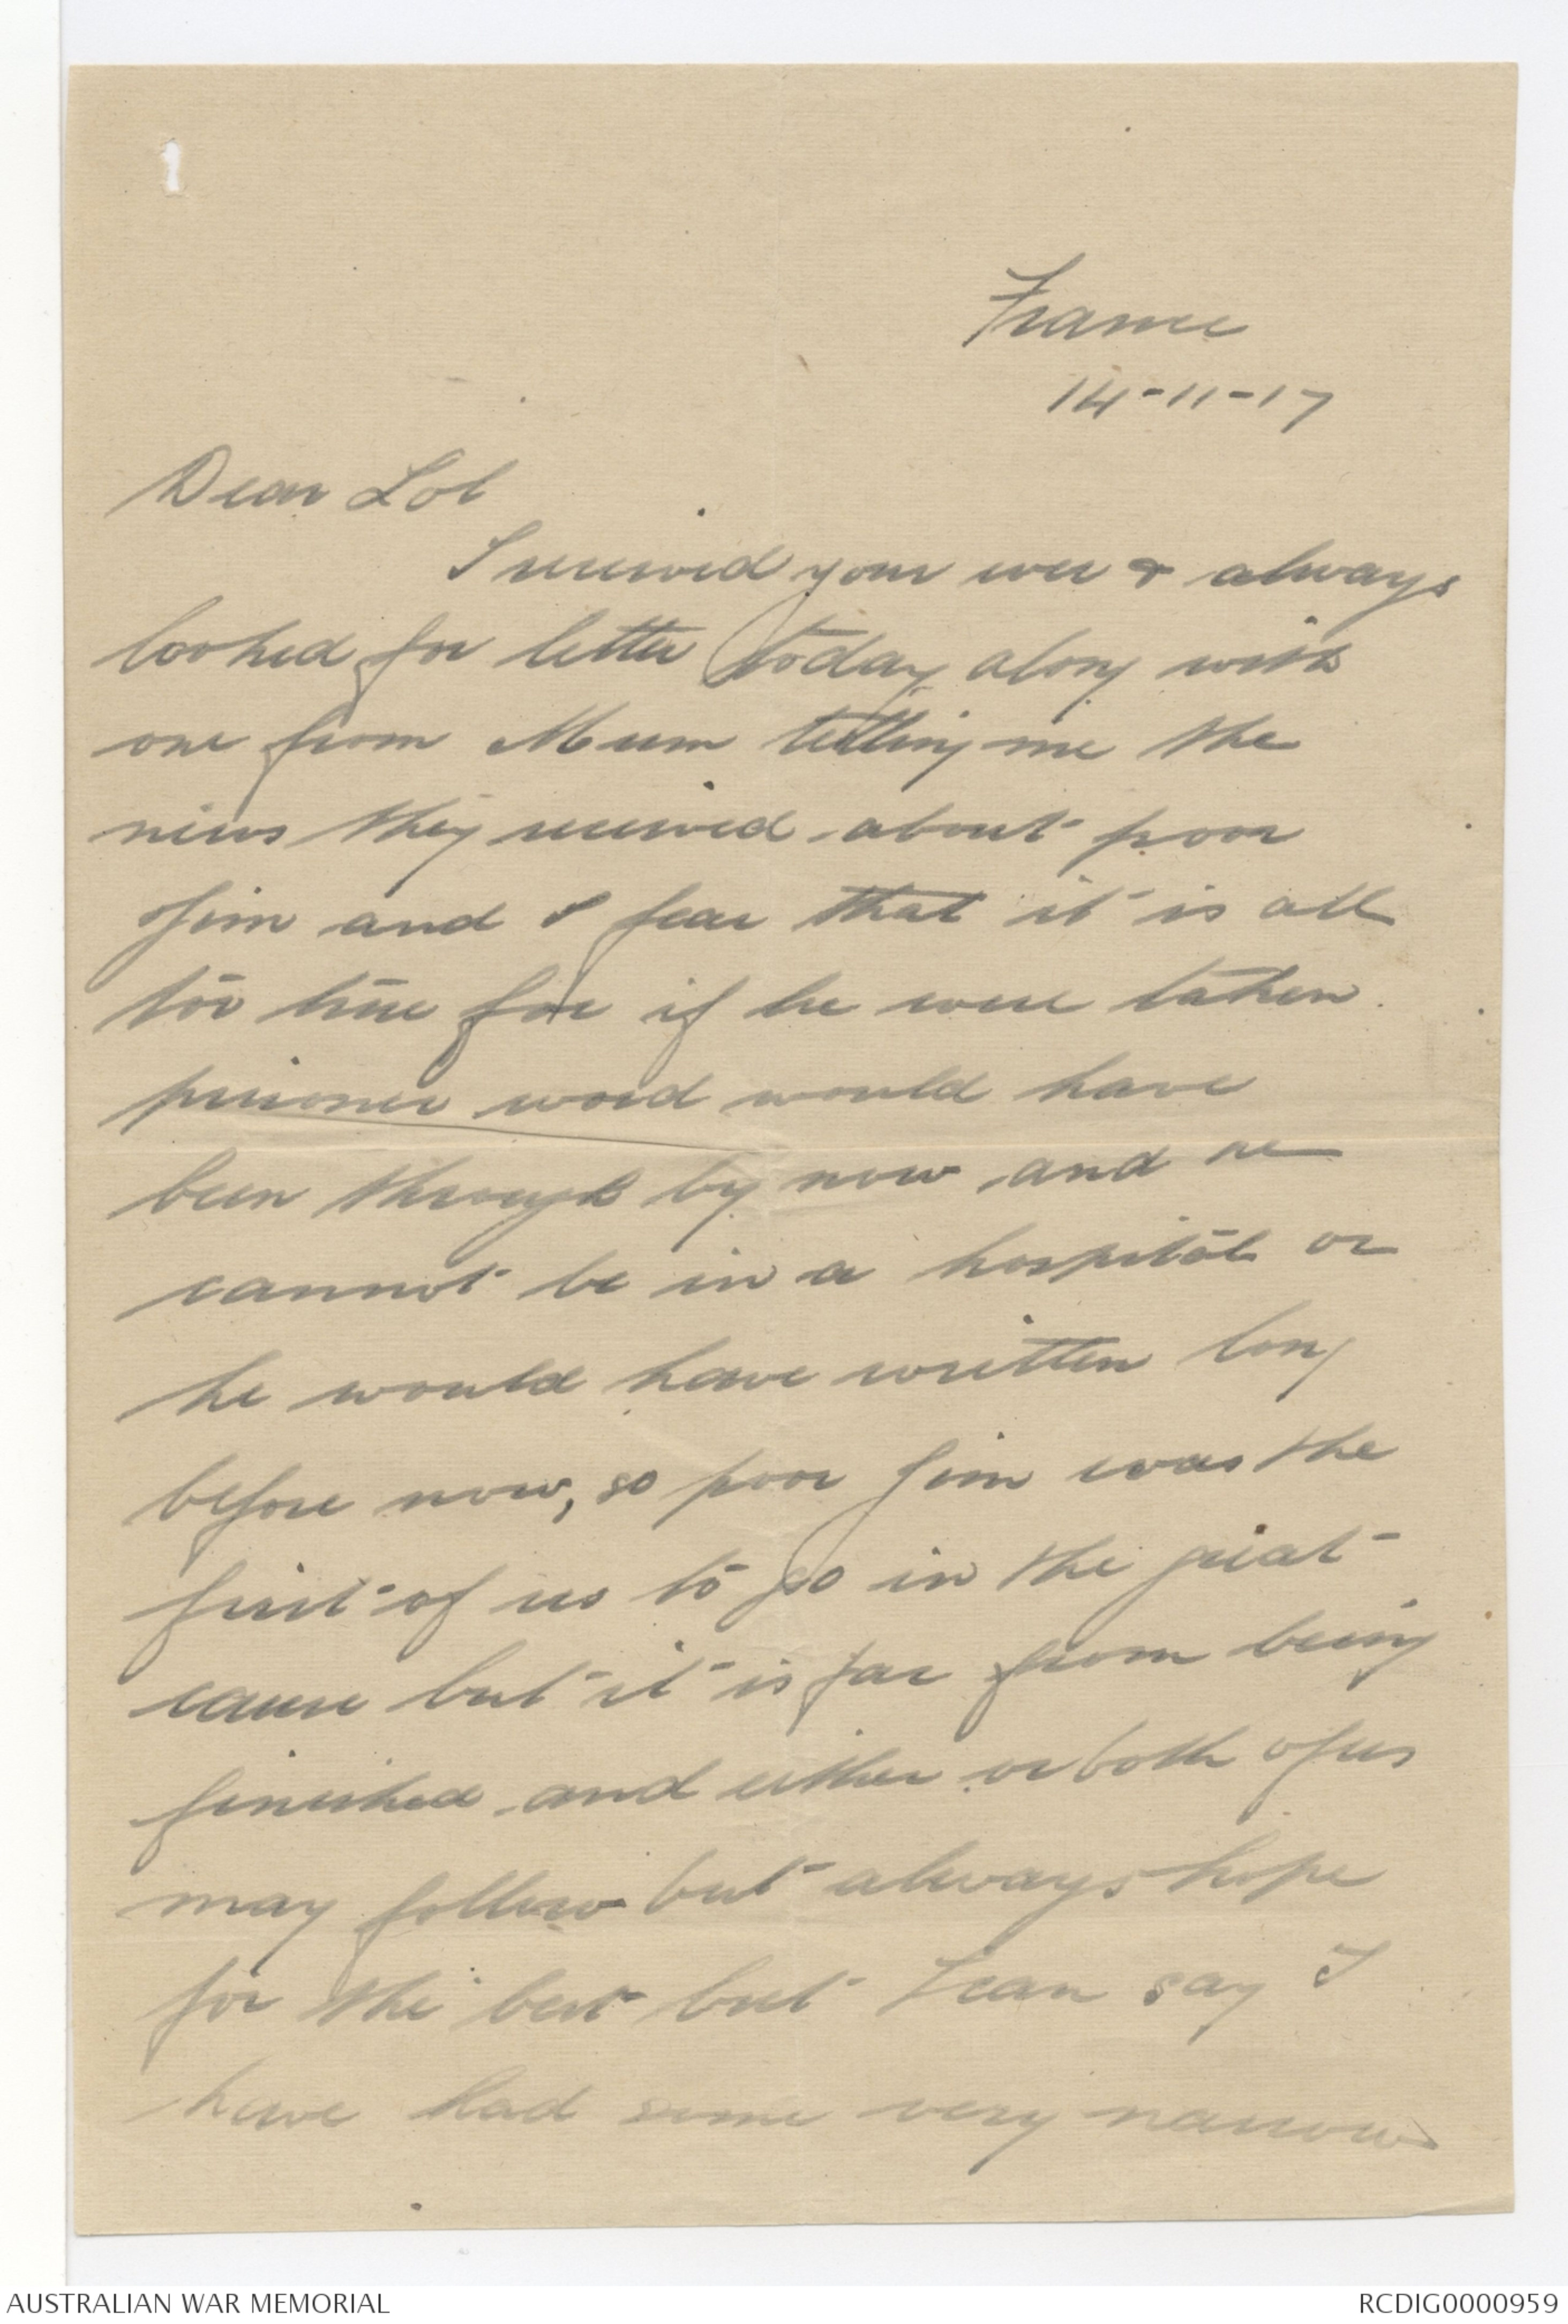 France
14-11-17
Dear Lol
I received your ever & always
looked for letter today along with
one from Mum telling me the
news they received about poor
Jim and I fear that it is all
too true for if he were taken
prisoner word would have
been through by now and he
cannot be in a hospital or
he would have written long
before now, so poor Jim was the
first of us to go in the great
cause but it is far from being
finished and either or both of us
may follow but always hope
for the best but I can say I
have had some very narrow
AUSTRALIAN WAR MEMORIAL
RCDIG0000959